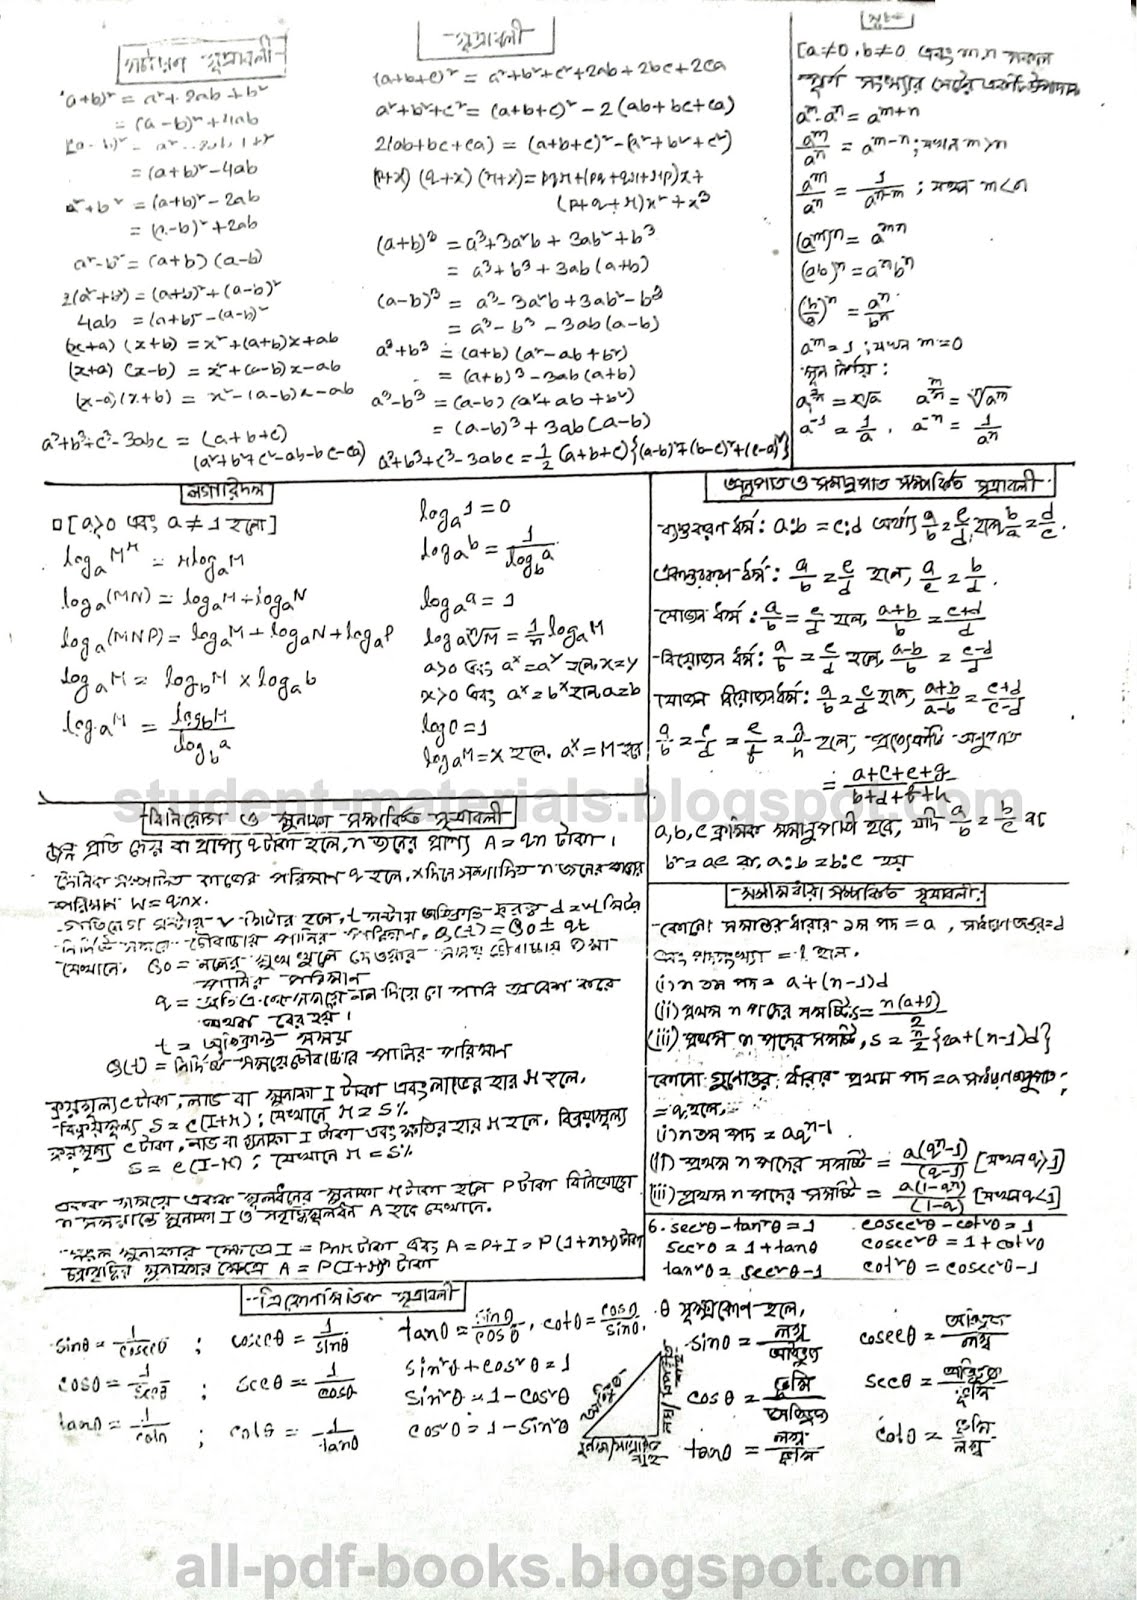 সূত্রাবলী
(a+b)² = a²+2ab+b²
= (a-b)²+4ab
= (a+b)²-4ab
a²+b² = (a+b)²-2ab
= (a-b)²+2ab
a²-b² = (a+b)(a-b)
2(a²+b²) = (a+b)²+(a-b)²
4ab = (a+b)²-(a-b)²
(x+a)(x+b) = x²+(a+b)x+ab
(x+a)(x-b) = x²+(a-b)x-ab
(x-a)(x+b) = x²-(a-b)x-ab
a³+b³+c³-3abc = (a+b+c)
(a²+b²+c²-ab-bc-ca)
সূত্রাবলী
(a+b+c)² = a²+b²+c²+2ab+2bc+2ca
a²+b²+c² = (a+b+c)²-2(ab+bc+ca)
2(ab+bc+ca) = (a+b+c)²-(a²+b²+c²)
(p+x)(q+x)(r+x) = pqr+(pq+qr+rp)x+
(p+q+r)x²+x³
(a+b)³ = a³+3a²b+3ab²+b³
= a³+b³+3ab(a+b)
(a-b)³ = a³-3a²b+3ab²-b³
= a³-b³-3ab(a-b)
a³+b³ = (a+b)(a²-ab+b²)
= (a+b)³-3ab(a+b)
a³-b³ = (a-b)(a²+ab+b²)
= (a-b)³+3ab(a-b)
a³+b³+c³-3abc = 1/2 (a+b+c){(a-b)²+(b-c)²+(c-a)²}
[a≠0, b≠0 এবং m,n সকল
পূর্ণ সংখ্যার সেটের
aᵐ·aⁿ = aᵐ⁺ⁿ
aᵐ/aⁿ = aᵐ⁻ⁿ; যখন m>n
aᵐ/aⁿ = 1/aⁿ⁻ᵐ; যখন m<n
(aᵐ)ⁿ = aᵐⁿ
(ab)ⁿ = aⁿbⁿ
= aⁿ/bⁿ
aᵐ=1; যখন m=0
মূল নির্ণয়:
a^(m/n) = ⁿ√aᵐ
a⁻¹ = 1/a, a⁻ⁿ = 1/aⁿ
লগারিদম
[a>0 এবং a≠1 হলে]
logₐMʳ = rlogₐM
logₐ(MN) = logₐM+logₐN
logₐ(MNP) = logₐM+logₐN+logₐP
logₐM = log_bM × logₐb
logₐM = log_bM/log_ba
logₐ1 = 0
logₐb = 1/log_ba
logₐa = 1
logₐⁿ√M = 1/n logₐM
a>0 এবং aˣ=aʸ হলে, x=y
x>0 এবং aˣ=bˣ হলে a=b
logₐM=x হলে, aˣ=M হবে
অনুপাত ও সমানুপাত সম্পর্কিত সূত্রাবলী
ব্যস্তকরণ ধর্ম: a:b = c:d অর্থাৎ a/b = c/d হলে, b/a = d/c.
একান্তরকরণ ধর্ম: a/b = c/d হলে, a/c = b/d.
যোজন ধর্ম: a/b = c/d হলে, (a+b)/b = (c+d)/d
বিয়োজন ধর্ম: a/b = c/d হলে, (a-b)/b = (c-d)/d
যোজন বিয়োজন ধর্ম: a/b = c/d হলে, (a+b)/(a-b) = (c+d)/(c-d)
a/b = c/d = e/f = g/h হলে, প্রত্যেকটি অনুপাত
= (a+c+e+g)/(b+d+f+h)
a,b,c ক্রমিক সমানুপাতী হবে, যদি a/b = b/c বা
b² = ac বা, a:b = b:c হয়
student-materials.blogspot.com
বিনিয়োগ ও মুনাফা সম্পর্কিত সূত্রাবলী
জন প্রতি দেয় বা প্রাপ্য q টাকা হলে, n জনের প্রাপ্য A = qn টাকা।
পরিমাণ W = qnx.
Q(t) = Q₀ ± qt
যেখানে, Q₀ = নলের মুখ খুলে দেওয়ার সময় চৌবাচ্চায় জমা
পানির পরিমাণ
q = প্রতি একক সময়ে নল দিয়ে যে পানি প্রবেশ করে
অথবা বের হয়।
t = অতিক্রান্ত সময়
Q(t) = নির্দিষ্ট সময়ে চৌবাচ্চার পানির পরিমাণ
ক্রয়মূল্য c টাকা, লাভ বা মুনাফা I টাকা এবং লাভের হার r হলে,
বিক্রয়মূল্য S = c(I+r); যেখানে r = S%
ক্রয়মূল্য c টাকা, লাভ বা মুনাফা I টাকা এবং ক্ষতির হার r হলে, বিক্রয়মূল্য
S = c(I-r); যেখানে r = S%
একক সময়ে একক মূলধনের মুনাফা r টাকা হলে P টাকা বিনিয়োগে
n সময়ান্তে মুনাফা I ও সবৃদ্ধিমূল A হবে যেখানে,
সরল মুনাফার ক্ষেত্রে I = Pnr টাকা এবং A = P+I = P(1+nr) টাকা
চক্রবৃদ্ধির মুনাফার ক্ষেত্রে A = P(I+r)ⁿ টাকা
কোনো সমান্তর ধারার ১ম পদ = a, সাধারণ অন্তর = d
(i) n তম পদ = a+(n-1)d
(ii) প্রথম n পদের সমষ্টি S = n(a+l)/2
(iii) প্রথম n পদের সমষ্টি, S = n/2 {2a+(n-1)d}
কোনো গুণোত্তর ধারার প্রথম পদ = a সাধারণ অনুপাত
= q হলে,
(i) n তম পদ = aqⁿ⁻¹
(ii) প্রথম n পদের সমষ্টি = a(qⁿ-1)/(q-1) [যখন q>1]
(iii) প্রথম n পদের সমষ্টি = a(1-qⁿ)/(1-q) [যখন q<1]
6. sec²θ-tan²θ = 1 cosec²θ-cot²θ = 1
sec²θ = 1+tan²θ cosec²θ = 1+cot²θ
tan²θ = sec²θ-1 cot²θ = cosec²θ-1
ত্রিকোণমিতিক সূত্রাবলী
sinθ = 1/cosecθ ; cosecθ = 1/sinθ
cosθ = 1/secθ ; secθ = 1/cosθ
tanθ = 1/cotθ ; cotθ = 1/tanθ
tanθ = sinθ/cosθ, cotθ = cosθ/sinθ.
sin²θ+cos²θ = 1
sin²θ = 1-cos²θ
cos²θ = 1-sin²θ
θ সূক্ষ্মকোণ হলে,
sinθ = লম্ব/অতিভুজ cosecθ = অতিভুজ/লম্ব
cosθ = ভূমি/অতিভুজ secθ = অতিভুজ/ভূমি
tanθ = লম্ব/ভূমি cotθ = ভূমি/লম্ব
অতিভুজ
all-pdf-books.blogspot.com